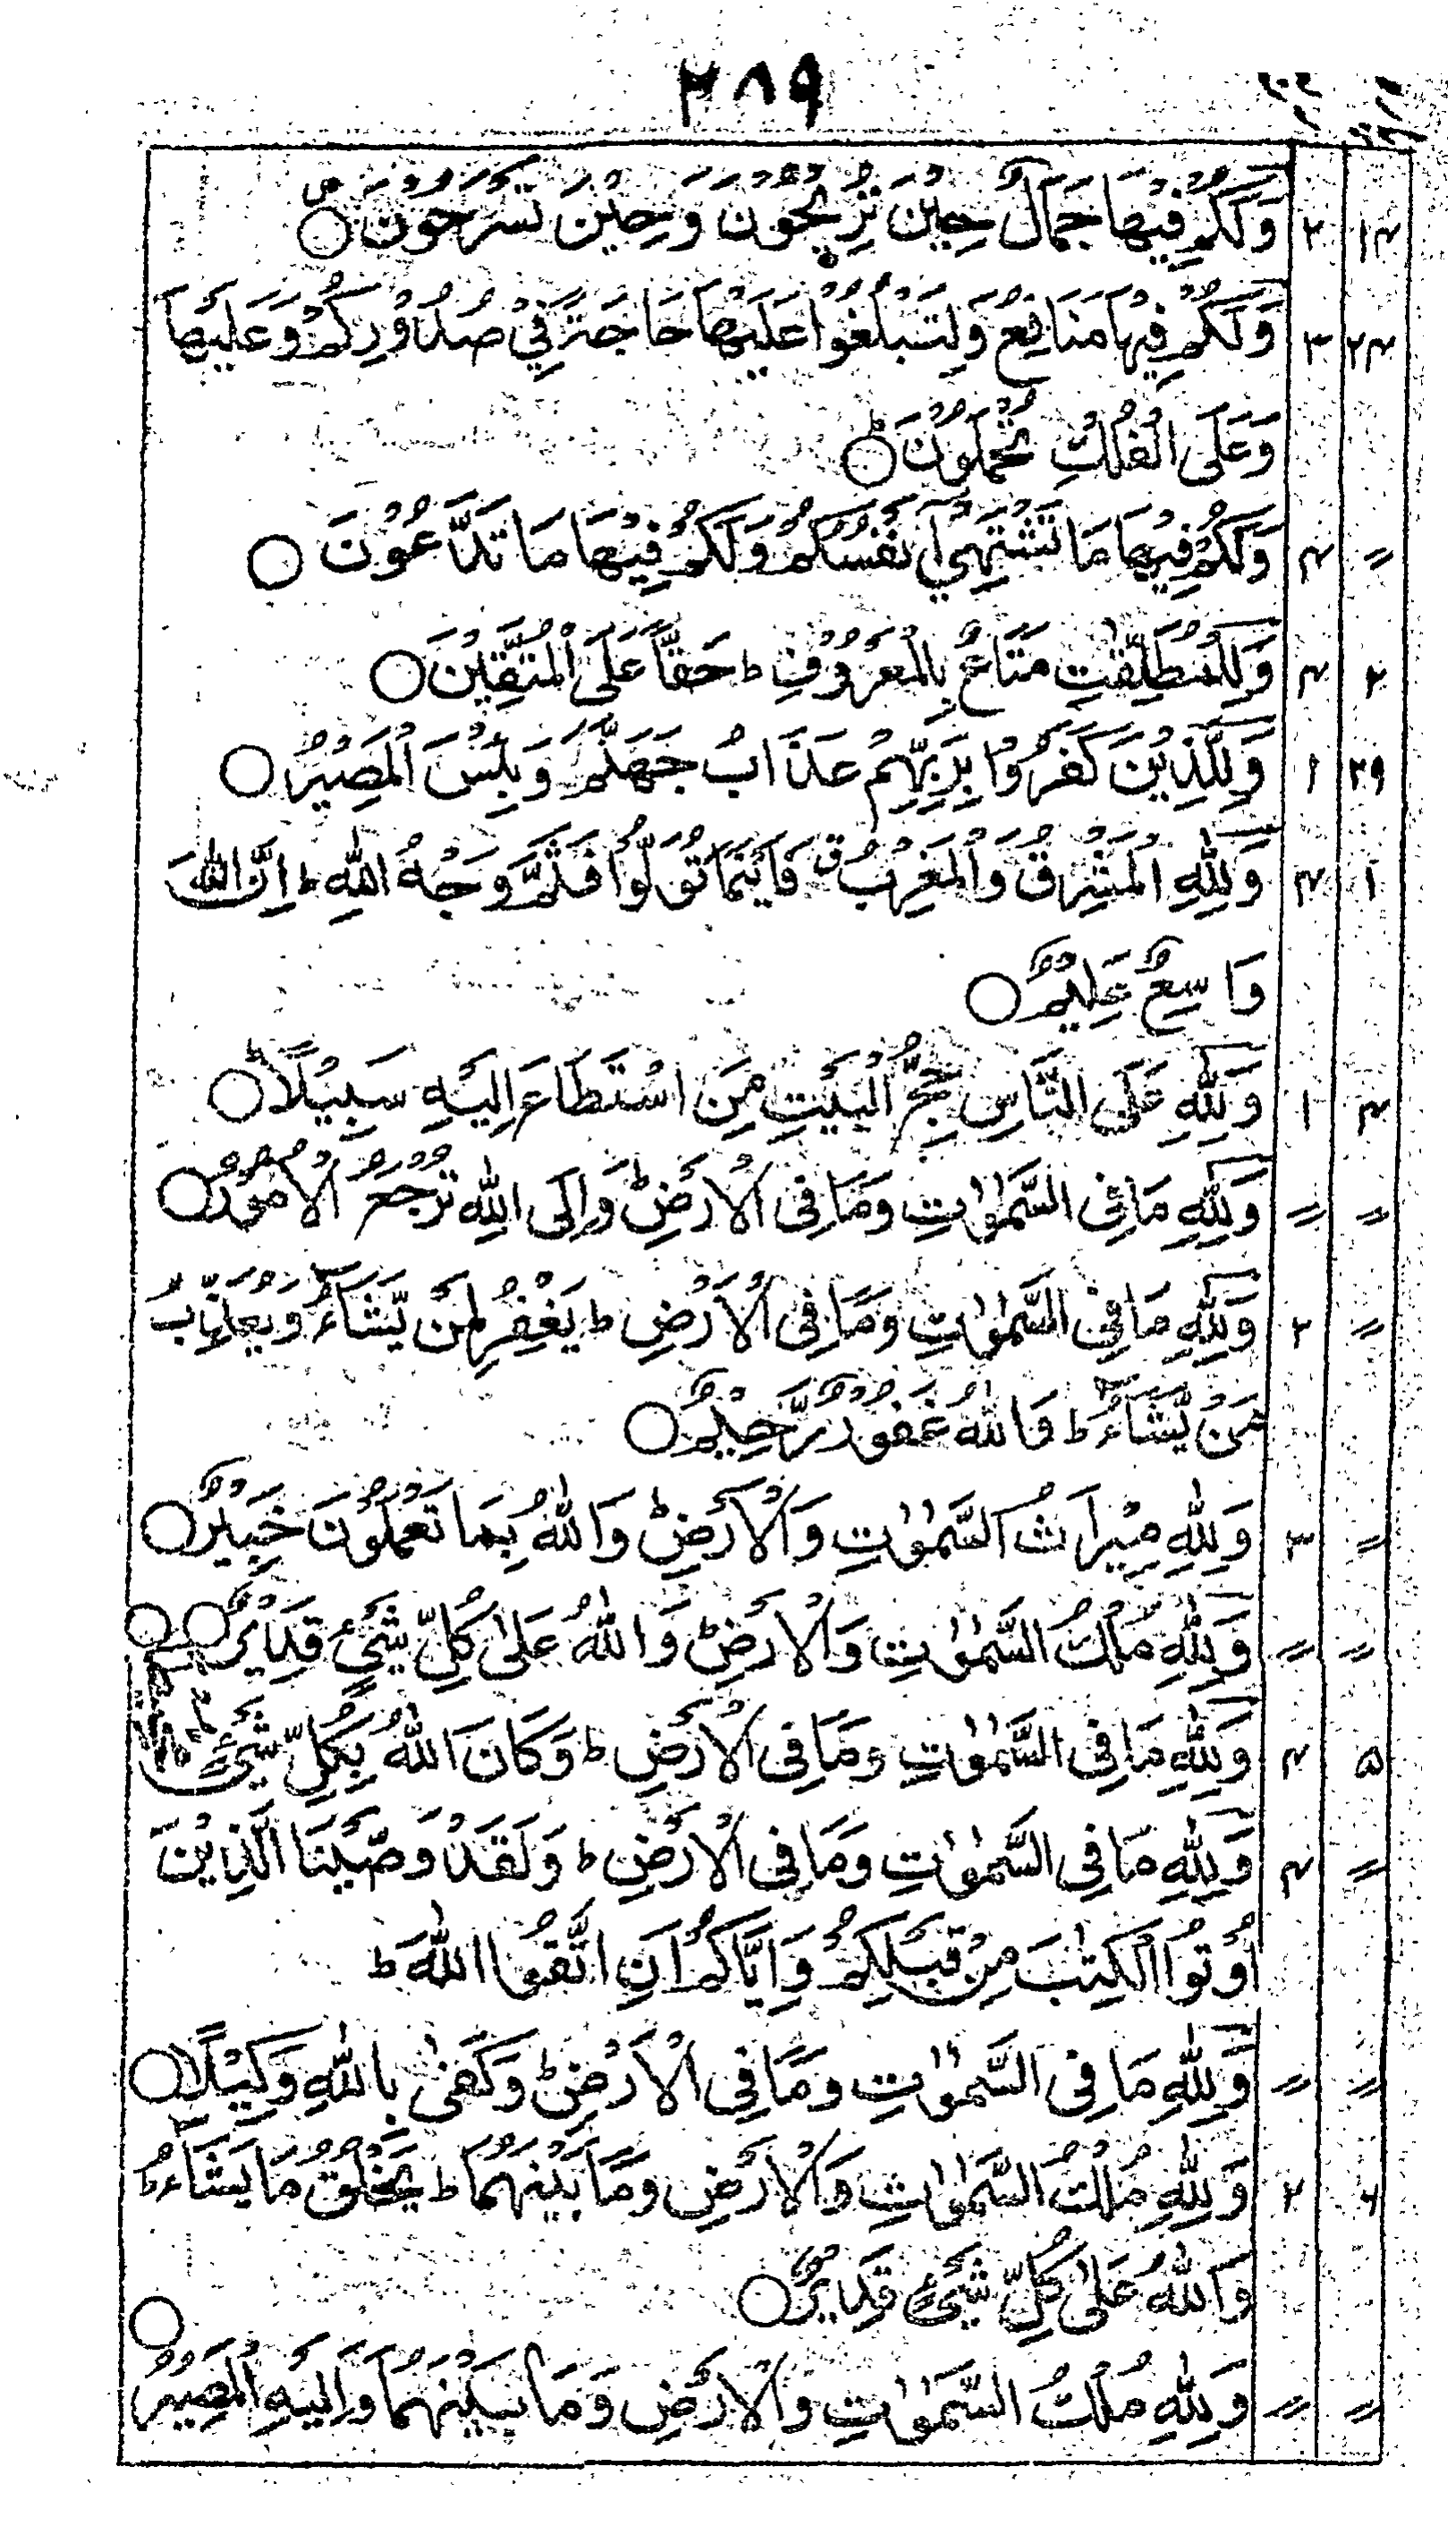 ۲۸۹
۱۴ ۲ وَلَكُمْ فِيْهَا جَمَالٌ حِيْنَ تُرِيْحُوْنَ وَحِيْنَ تَسْرَحُوْنَ ○
۲۴ ۳ وَلَكُمْ فِيْهَا مَنَافِعُ وَلِتَبْلُغُوْا عَلَيْهَا حَاجَةً فِيْ صُدُوْرِكُمْ وَعَلَيْهَا
وَعَلَى الْفُلْكِ تُحْمَلُوْنَ ○
〃 ۴ وَلَكُمْ فِيْهَا مَا تَشْتَهِيْ اَنْفُسُكُمْ وَلَكُمْ فِيْهَا مَا تَدَّعُوْنَ ○
۲ ۴ وَلِلْمُطَلَّقٰتِ مَتَاعٌ بِالْمَعْرُوْفِ ؕ حَقًّا عَلَى الْمُتَّقِيْنَ ○
۲۹ ۱ وَلِلَّذِيْنَ كَفَرُوْا بِرَبِّهِمْ عَذَابُ جَهَنَّمَ وَبِئْسَ الْمَصِيْرُ ○
۱ ۴ وَلِلّٰهِ الْمَشْرِقُ وَالْمَغْرِبُ ق فَاَيْنَمَا تُوَلُّوْا فَثَمَّ وَجْهُ اللّٰهِ ؕ اِنَّ اللّٰهَ
وَاسِعٌ عَلِيْمٌ ○
۴ ۱ وَلِلّٰهِ عَلَى النَّاسِ حِجُّ الْبَيْتِ مَنِ اسْتَطَاعَ اِلَيْهِ سَبِيْلًا ؕ ○
〃 〃 وَلِلّٰهِ مَا فِى السَّمٰوٰتِ وَمَا فِى الْاَرْضِ ؕ وَاِلَى اللّٰهِ تُرْجَعُ الْاُمُوْرُ ○
〃 ۲ وَلِلّٰهِ مَا فِى السَّمٰوٰتِ وَمَا فِى الْاَرْضِ ؕ يَغْفِرُ لِمَنْ يَّشَآءُ وَيُعَذِّبُ
مَنْ يَّشَآءُ ؕ وَاللّٰهُ غَفُوْرٌ رَّحِيْمٌ ○
〃 ۳ وَلِلّٰهِ مِيْرَاثُ السَّمٰوٰتِ وَالْاَرْضِ ؕ وَاللّٰهُ بِمَا تَعْمَلُوْنَ خَبِيْرٌ ○
〃 〃 وَلِلّٰهِ مُلْكُ السَّمٰوٰتِ وَالْاَرْضِ ؕ وَاللّٰهُ عَلٰى كُلِّ شَيْءٍ قَدِيْرٌ ○ ○
۵ ۴ وَلِلّٰهِ مَا فِى السَّمٰوٰتِ وَمَا فِى الْاَرْضِ ؕ وَكَانَ اللّٰهُ بِكُلِّ شَيْءٍ
〃 ۴ وَلِلّٰهِ مَا فِى السَّمٰوٰتِ وَمَا فِى الْاَرْضِ ؕ وَلَقَدْ وَصَّيْنَا الَّذِيْنَ
اُوْتُوا الْكِتٰبَ مِنْ قَبْلِكُمْ وَاِيَّاكُمْ اَنِ اتَّقُوا اللّٰهَ ؕ
〃 〃 وَلِلّٰهِ مَا فِى السَّمٰوٰتِ وَمَا فِى الْاَرْضِ ؕ وَكَفٰى بِاللّٰهِ وَكِيْلًا ○
۶ ۲ وَلِلّٰهِ مُلْكُ السَّمٰوٰتِ وَالْاَرْضِ وَمَا بَيْنَهُمَا ؕ يَخْلُقُ مَا يَشَآءُ ؕ
وَاللّٰهُ عَلٰى كُلِّ شَيْءٍ قَدِيْرٌ ○
〃 〃 وَلِلّٰهِ مُلْكُ السَّمٰوٰتِ وَالْاَرْضِ وَمَا بَيْنَهُمَا وَاِلَيْهِ الْمَصِيْرُ ○